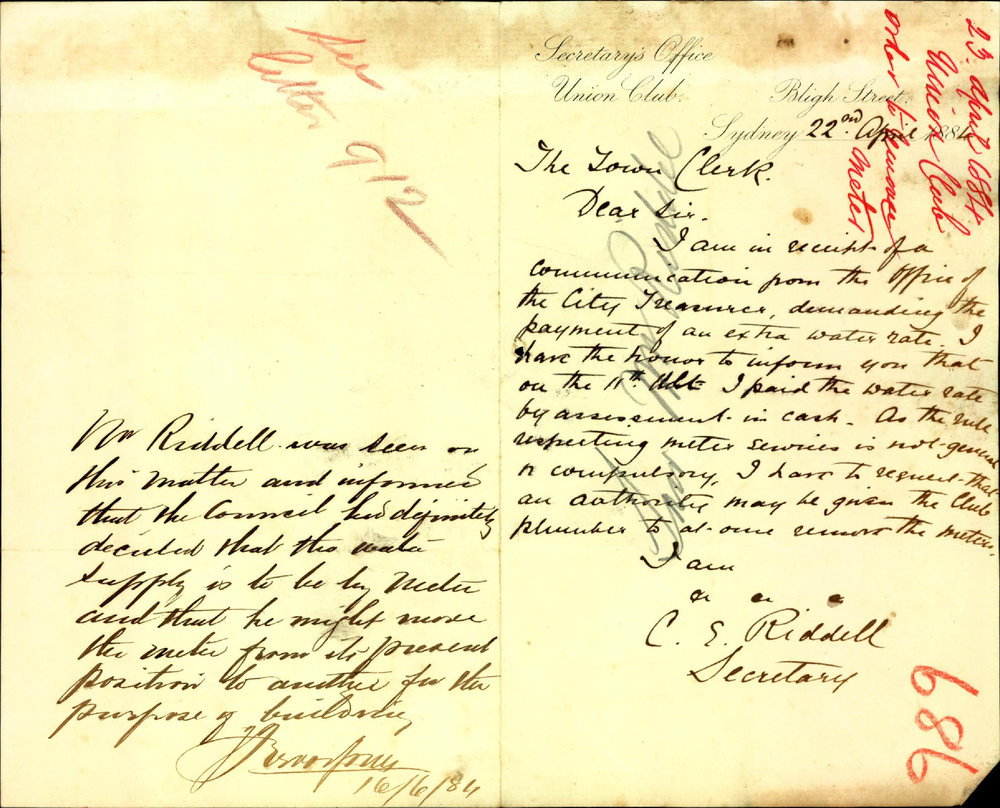 See
letter 912
Mr Riddell was seen on
this matter and informed
that the Council has definitely
decided that the water
supply is to be by meter
and that he might move
the meter from its present
position to another for the
purpose of building
16/6/84
Secretary's Office
Union Club.
Bligh Street.
Sydney 22nd April 1884
The Town Clerk.
Dear Sir.
I am in receipt of a
communication from the Office of
the City Treasurer, demanding the
payment of an extra water rate. I
have the honor to inform you that
on the 11th Ult I paid the water rate
by assessment in cash. As the rule
respecting meter services is not general
or compulsory, I have to request that
an authority may be given the Club
plumber to at once remove the meter.
I am
C. E. Riddell
Secretary
23 April 1884
Union Club
order to remove
meter
Mr Riddell
689